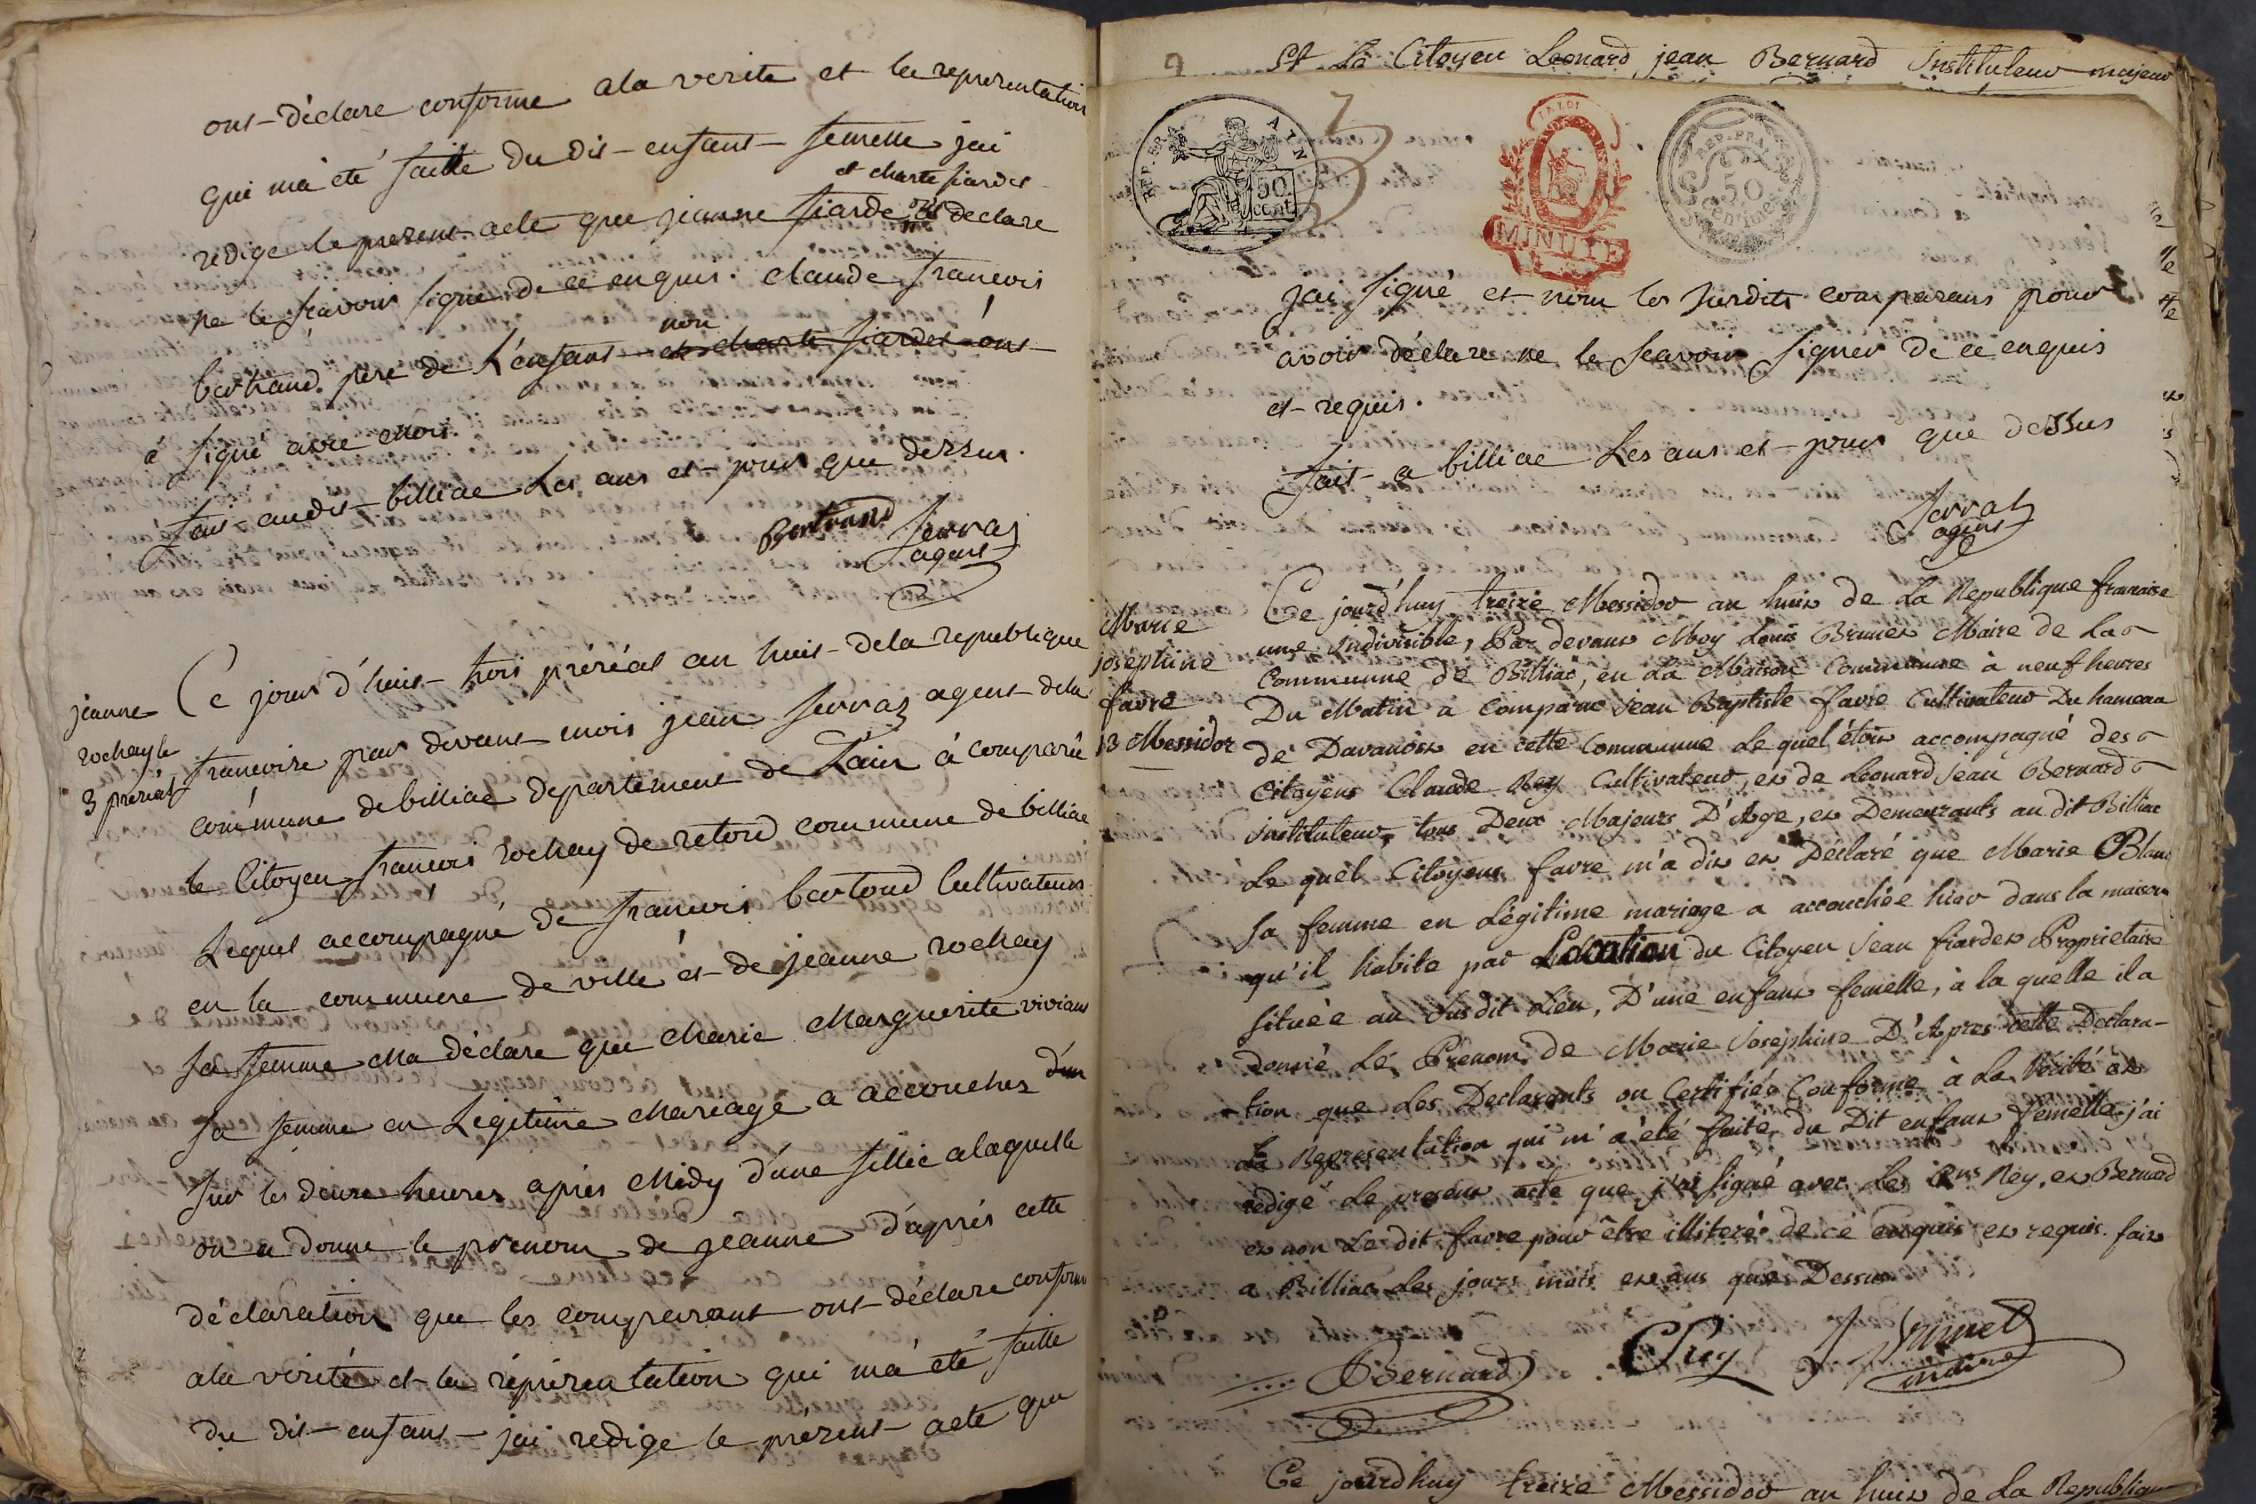 ons-déclare conforme ala verite et la representation
qui má eté faitte du dis-enfans-femelle jai
et charte fiardes
redige le present acte que jeanne fiarde ons declare
ne le scavoir signé de ce enquis. claude francois
non
bertrand père de L'enfans et charte fiardet ons
á signé avec mois.
fais audis-billiae Les ans et-jour que dessus.
Bertrand
Servaz
agent
jeanne
rochay le
3 préréal
Ce jour d'huis-trois préréal an huis-dela republique
francoise par devans mois jean Servaz agent dela
commune de billiae departement de Lain á comparû
le Citoyen francois rochay de retord commune de billiae
Lequel accompagné de francois bertoud Cultivateur
en la commune de ville et-de jeanne rochay
sa femme ma déclare que Marie Marguerite vivians
sa femme en Legitime Mariage a accouchez d'un
sur les deux heures après Midy d'une fillie alaquelle
on a donne le prenom de jeanne d'après cette
déclaration que les comparant ons-déclare conforme
ala vérité et-la réprésentation qui má été faitte
du dis-enfans-jai redige le présent-acte que
9 Et Le Citoyen Leonard jean Bernard Instituteur majeur
REP. FRA
50
cent.
MINUTE
REP. FRA
50
Centimes
jai signé et-non les susdits comparans pour
avoir déclare ne le scavoir signer de ce enquis
et-requis.
fais-a billiae Les ans et-jour que dessus
Servaz
agent
Marie
josephine
favre
13 Messidor
Ce jourd'huy treize Messidor an huit de La Republique francaise
une indivisible, Par devant Moy Louis Brunet Maire de La
Commune de Billiac, en La Maison Commune à neuf heures
Du Matin a Comparu Jean Baptiste favre Cultivateur Du hameau
de Davanod en cette Commune Le quel étoit accompagné des
Citoyens Claude Rey Cultivateur, et de Leonard Jean Bernard
instituteur, tous Deux Majeurs D'Age, et Demeurants au dit Billiac
Le quel Citoyen favre m'a dit et Déclaré que Marie Blanc
sa femme en Légitime mariage a accouchée hier dans la maison
qu'il habite par Location du Citoyen Jean fiardet Proprietaire
située au susdit Lieu, D'une enfant femelle, à la quelle il a
donné Le Prenom de Marie Josephine D'Apres cette Declara-
tion que Les Declarants on Certifiée Conforme à La Vérité et
La Representation qui m'a été faite, du Dit enfant femelle j'ai
redigé Le present acte que j'ai signé avec Les Cns Rey, et Bernard
et non Le dit favre pour être illiteré de cé enquis et requis. fait
a Billiac Les jours mois et ans que Dessus
Bernard
C Rey
Brunet
maire
Ce jourdhuy treize Messidor an huit de La Republique